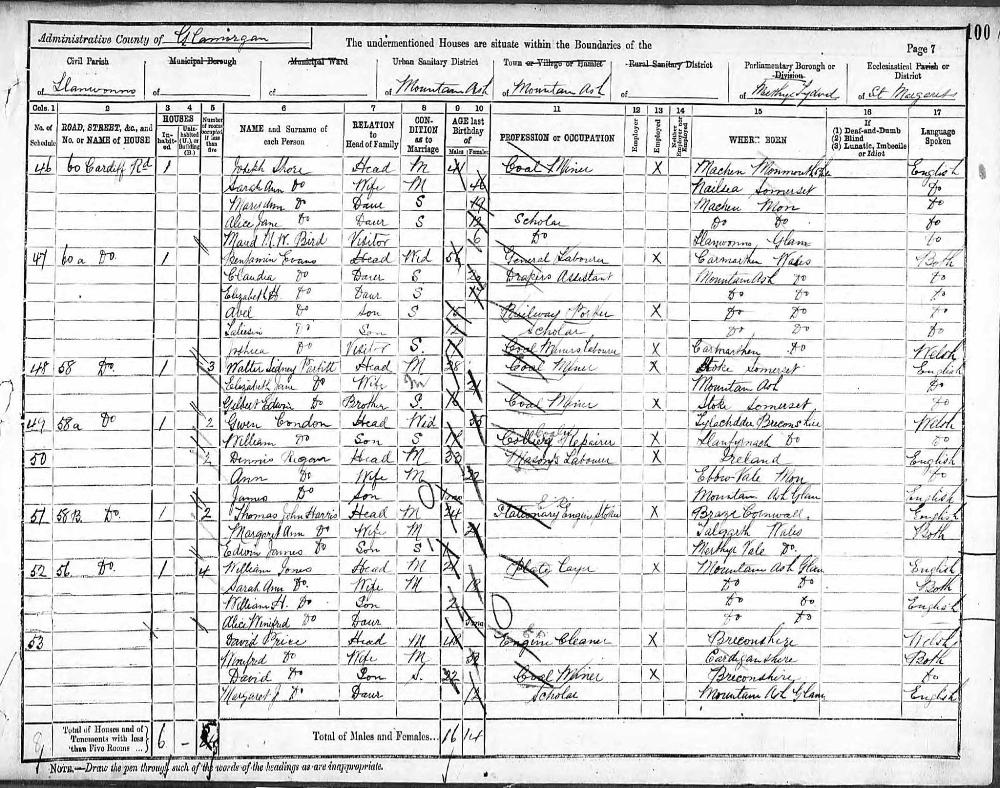 100
Administrative County of Glamorgan
The undermentioned Houses are situate within the Boundaries of the
Page 7
Civil Parish Municipal Borough Municipal Ward Urban Sanitary District Town or Village or Hamlet Rural Sanitary District Parliamentary Borough or Division Ecclesiastical Parish or District
of Llanwonno of of of Mountain Ash of Mountain Ash of of Merthyr Tydvil of St Margarets
Cols. 1 2 3 4 5 6 7 8 9 10 11 12 13 14 15 16 17
No. of Schedule ROAD, STREET, &c., and No. or NAME of HOUSE HOUSES Inhabited Uninhabited (U.) or Building (B.) Number of rooms occupied if less than five NAME and Surname of each Person RELATION to Head of Family CONDITION as to Marriage AGE last Birthday of Males Females PROFESSION or OCCUPATION Employer Employed Neither Employer nor Employed WHERE BORN If (1) Deaf-and-Dumb (2) Blind (3) Lunatic, Imbecile or Idiot Language Spoken
46 60 Cardiff Rd 1 Joseph Shore Head M 41 Coal Miner X Machen English
Sarah Ann Do Wife M 46 Nailsea Somerset Do
Do Daur S Machen Mon Do
Alice Jane Do Daur S 12 Scholar Do Do Do
Maud M.W. Bird Visitor 6 Do Llanwonno Glam Do
47 60 a Do 1 Benjamin Evans Head Wid General Labourer X Carmarthen Wales Both
Claudia Do Daur S Drapers Assistant Mountain Ash Do Do
Elizabeth H. Do Daur S Do Do Do
Abel Do Son S 15 Railway Porker X Do Do Do
Do Son 12 Scholar Do Do Do
Do Visitor S. Coal Miners labourer X Carmarthen Do Welsh
48 58 Do 1 3 Walter Sidney Parfitt Head M 28 Coal Miner X Stoke Somerset English
Elizabeth Jane Do Wife M Mountain Ash Do
Gilbert Edwin Do Brother S. Coal Miner X Stoke Somerset
49 58 a Do 1 2 Gwen Condon Head Wid 55 Breconshire Welsh
William Do Son S Colliery Repairer X Llanfyrnach Do Do
50 2 Dennis Regan Head M 33 Masons Labourer X Ireland English
Ann Do Wife M 22 Ebbw Vale Mon Do
James Do Son Mountain Ash Glam English
51 58 B. Do 1 2 Thomas John Harris Head M 24 Stationary Engine Stoker X Cornwall. English
Margaret Ann Do Wife M Talgarth Wales Both
Edwin James Do Son S 1 Merthyr Vale Do.
52 56 Do 1 4 William Jones Head M 21 Plate Layer X Mountain Ash Glam English
Sarah Ann Do. Wife M 19 Do Do Both
William H. Do Son 2 Do Do English
Alice Winifred Do Daur Do Do
53 David Price Head M 48 Engine Cleaner X Breconshire Welsh
Winifred Do Wife M Cardiganshire Both
David Do Son S. 22 Coal Miner X Breconshire Do
Margaret J. Do Daur 12 Scholar Mountain Ash Glam English
Total of Houses and of Tenements with less than Five Rooms ... 6 - Total of Males and Females... 16 14
NOTE.—Draw the pen through such of the words of the headings as are inappropriate.